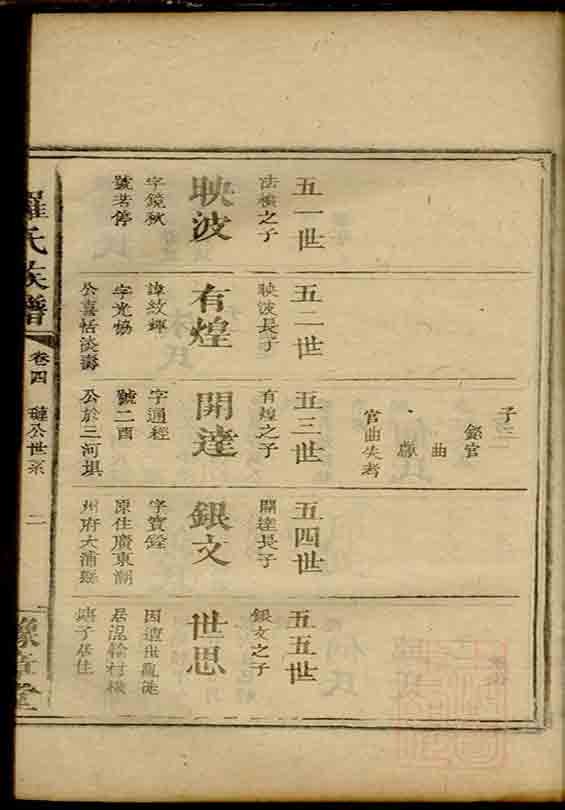 子三
錦官
曲
獻
官曲失考
五一世
法橫之子
映波
字鏡秋
號若停
五二世
映波長子
有煌
諱紋輝
字光協
公喜恬淡壽
五三世
有煌之子
開達
字通經
號二酉
公於三河垻
五四世
開達長子
銀文
字寶銓
原住廣東潮
州府大蒲縣
五五世
銀文之子
世思
因遭世亂徙
居混輪村橫
塘子居住
羅氏族譜
卷四
璉公世系
二
豫章堂